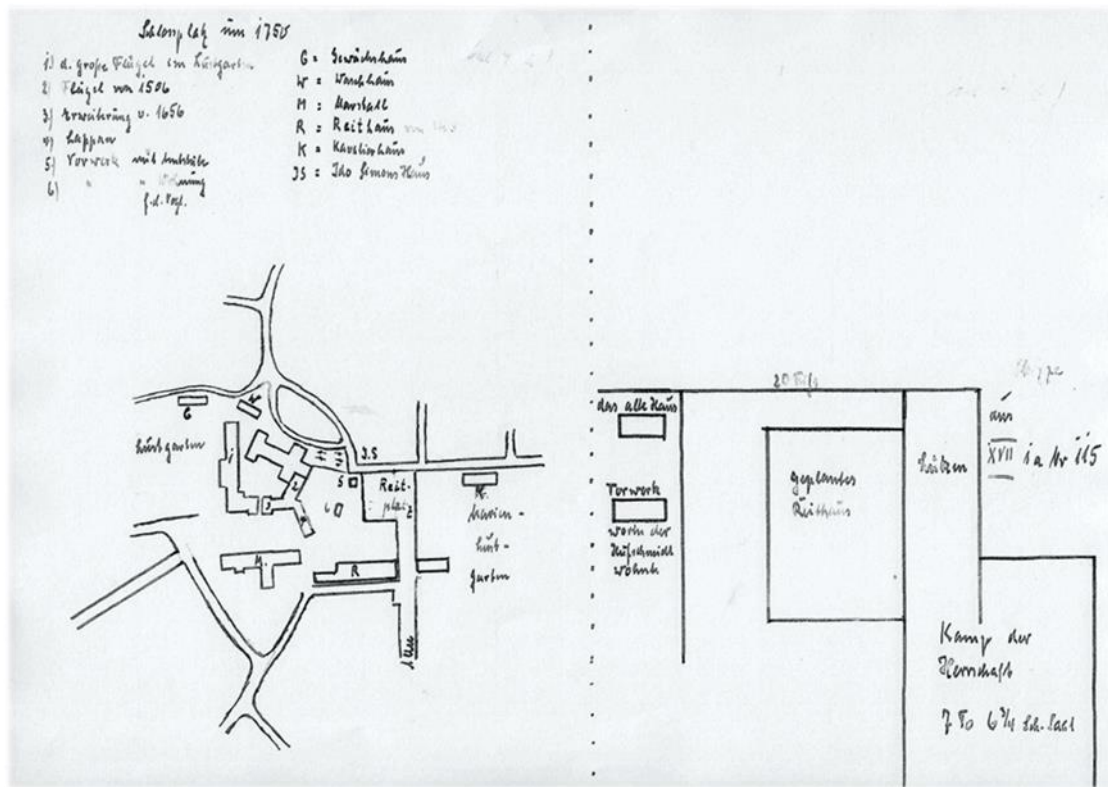 Schlossplatz um 1750
1) d. große Flügel im Lustgarten
2) Flügel von 1506
3) Erweiterung v. 1656
4) Lappan
5) Vorwerk mit
6) " " Wohnung
G = Gewächshaus
W = Waschhaus
M = Marstall
R = Reithaus
K = Kavalierhaus
JS = Ido Simons Haus
G
W
Lustgarten
1
2
3
J.S
5
6
Reit-
platz
K.
Marien-
Lust-
garten
M.
R
Allee
das alte Haus
Vorwerk
worin der
Hufschmidt
wohnte
geplantes
Reithaus
aus
XVII i a Nr 115
Kamp der
Herrschaft
7 To 6 3/4 Sch. Saat